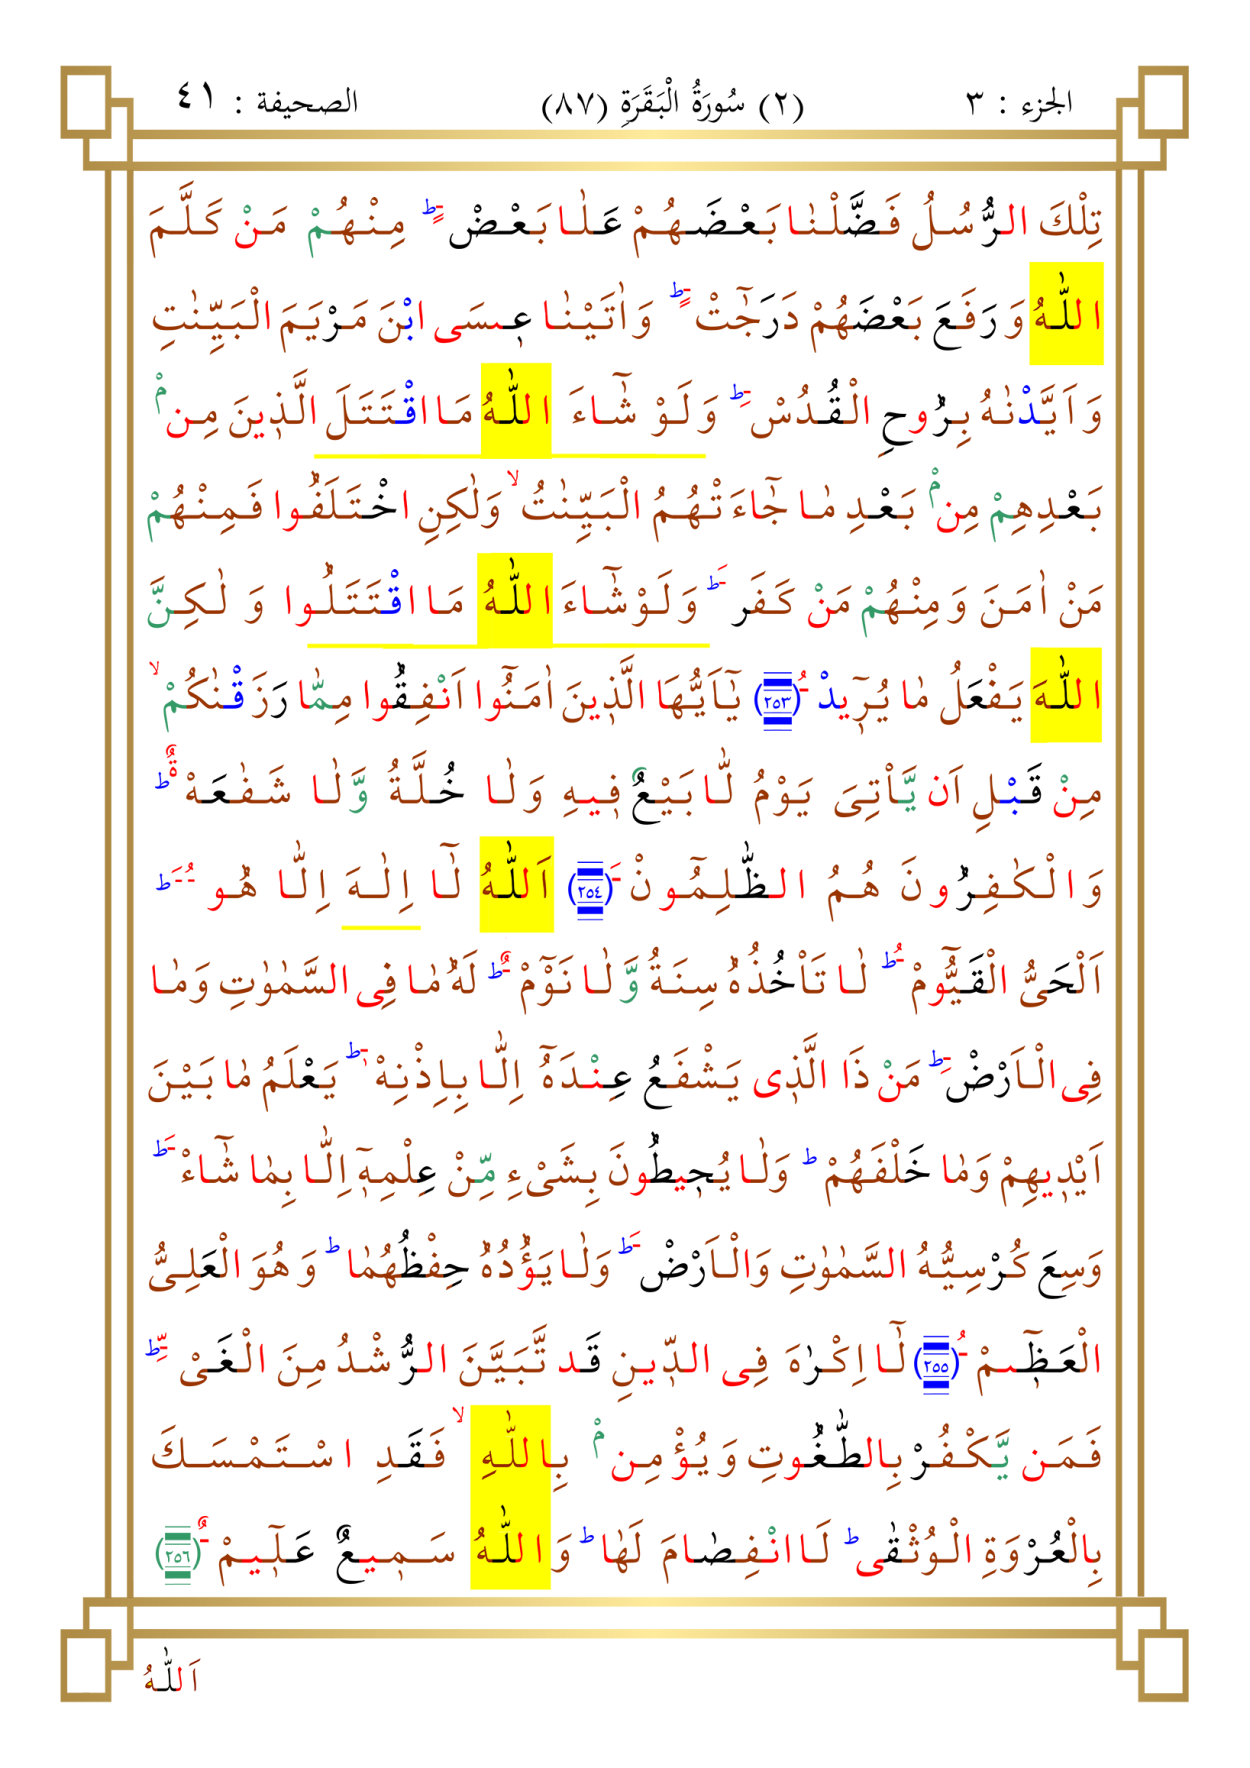 الجزء : ٣
(٢) سُورَةُ الْبَقَرَةِ (٨٧)
الصحيفة : ٤١
تِلْكَ الرُّسُلُ فَضَّلْنٰا بَعْضَهُمْ عَلٰا بَعْضْ ۘط مِنْهُمْ مَنْ كَلَّمَ
اللّٰهُ وَ رَفَعَ بَعْضَهُمْ دَرَجٰٓتْ ط وَ اٰتَيْنٰا عٖيسَى ابْنَ مَرْيَمَ الْبَيِّنٰتِ
وَ اَيَّدْنٰهُ بِرُوحِ الْقُدُسْ ط وَ لَوْ شٰٓاءَ اللّٰهُ مَا اقْتَتَلَ الَّذٖينَ مِن مْ
بَعْدِهِمْ مِن مْ بَعْدِ مٰا جٰٓاءَتْهُمُ الْبَيِّنٰتُ لا وَلٰكِنِ اخْتَلَفُوا فَمِنْهُمْ
مَنْ اٰمَنَ وَ مِنْهُمْ مَنْ كَفَر ط وَ لَوْ شٰٓاءَ اللّٰهُ مَا اقْتَتَلُوا وَ لٰكِنَّ
اللّٰهَ يَفْعَلُ مٰا يُرٖٓيدْ (٢٥٣) يٰٓاَيُّهَا الَّذٖينَ اٰمَنُٓوا اَنْفِقُوا مِمّٰا رَزَقْنٰكُمْ لا
مِنْ قَبْلِ اَن يَّاْتِىَ يَوْمُ لّٰا بَيْعٌ فٖيهِ وَ لٰا خُلَّةُ وَّ لٰا شَفٰعَهْ ط
وَ الْكٰفِرُونَ هُمُ الظّٰلِمُٓونْ (٢٥٤) اَللّٰهُ لٰٓا اِلٰهَ اِلّٰا هُو ط
اَلْحَىُّ الْقَيُّٓومْ ط لٰا تَاْخُذُهُ سِنَةُ وَّ لٰا نَوْٓمْ ط لَهُ مٰا فِى السَّمٰوٰتِ وَ مٰا
فِى الْاَرْضْ ط مَنْ ذَا الَّذٖى يَشْفَعُ عِنْدَهُٓ اِلّٰا بِاِذْنِهْ ط يَعْلَمُ مٰا بَيْنَ
اَيْدٖيهِمْ وَ مٰا خَلْفَهُمْ ط وَلٰا يُحٖيطُونَ بِشَىْءِ مِّنْ عِلْمِهٖٓ اِلّٰا بِمٰا شٰٓاءْ ط
وَسِعَ كُرْسِيُّهُ السَّمٰوٰتِ وَالْاَرْضْ ط وَلٰا يَؤُدُهُ حِفْظُهُمٰا ط وَ هُوَ الْعَلِىُّ
الْعَظٖٓيمْ (٢٥٥) لٰٓا اِكْرٰهَ فِى الدّٖينِ قَد تَّبَيَّنَ الرُّشْدُ مِنَ الْغَىْ ط
فَمَن يَّكْفُرْ بِالطّٰغُوتِ وَ يُؤْمِن مْ بِاللّٰهِ لا فَقَدِ اسْتَمْسَكَ
بِالْعُرْوَةِ الْوُثْقٰى ط لَا انْفِصٰامَ لَهٰا ط وَ اللّٰهُ سَمٖيعٌ عَلٖٓيمْ (٢٥٦)
اَللّٰهُ